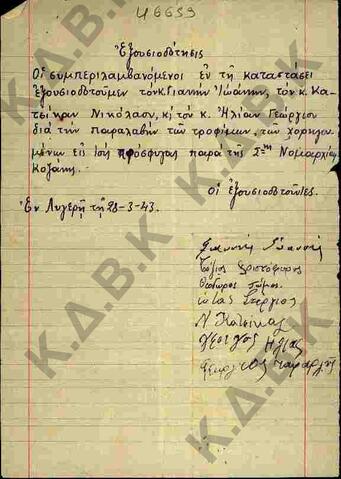 46659
Ἐξουσιοδότησις
Οἱ συμπεριλαμβανόμενοι ἐν τῇ καταστάσει
ἐξουσιοδοτοῦμεν τόν κ. Γιαννῆν Ἰωάννην, τόν κ. Κα-
τσίκαν Νικόλαον, κ' τόν κ. Ἠλίαν Γεώργιον
διά τήν παραλαβήν τῶν τροφίμων, τῶν χορηγου-
μένων εἰς πρόσφυγας παρά τῆς Σ/της Νομαρχίας
Κοζάνης.
Οἱ ἐξουσιοδοτοῦντες.
Ἐν Λυγερῇ τῇ 28-3-43.
Χριστόφορος
Θεόδωρος
Στέργιος
Ν Κατσίκας
Ηλίας
Γεώργιος
Κ.Δ.Β.Κ
Κ.Δ.Β.Κ
Κ.Δ.Β.Κ